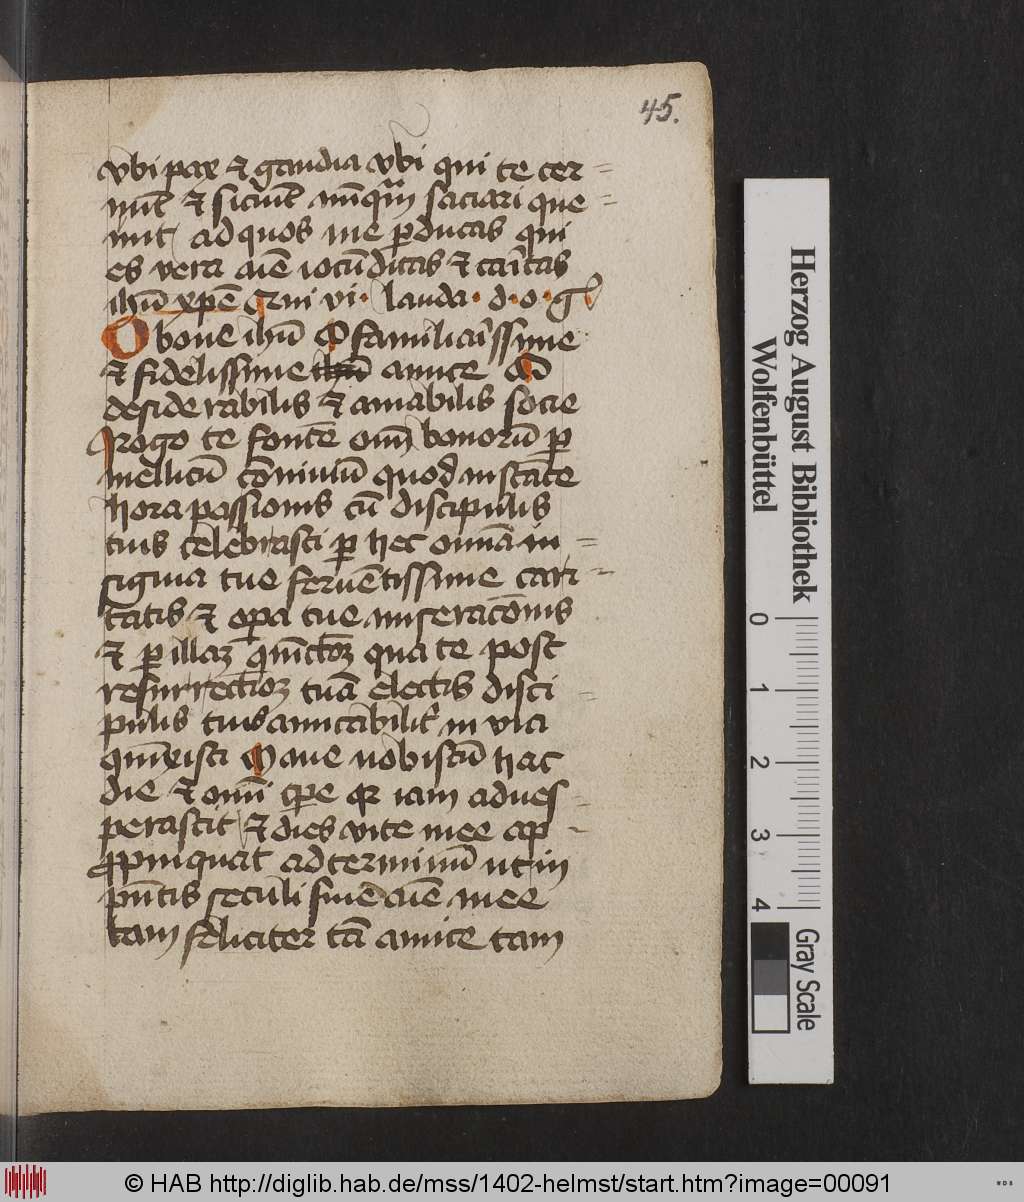 45.
vbi pax et gaudia vbi qui te cer=
nūt et siciūt nūqᵃm saciari que=
unt ad quos me ꝑducas qui
es vera aīe iocūditas et caritas
ihū xpē Qui vi· lauda· d·o·g
O bone ihū O familiarissime
et fidelissime amice Ad
desiderabilis et amabilis socie
Rogo te fontē oīm bonorū ꝑ
mellicū cōuiuiū quod instāte
hora passionis cū discipulis
tuis celebrasti ꝑ hec omīa in=
signia tue feruētissime cari=
tatis et oꝑa tue miseracōnis
et ꝑ illaꝫ qua te post
resurrectioēꝫ tuā electis disci=
pulis tuis amicabiliṫ in via
ꝯiūxisti Mane nobiscū hac
die et omī tꝑe qꝛ iam adues=
perascit et dies vite mee ap=
ꝓpinquāt ad terminū ut in
pn̄tis seculi fine aīe mee
tam feliciter tā amice tam
Herzog August Bibliothek
Wolfenbüttel
0 1 2 3 4
Gray Scale
© HAB http://diglib.hab.de/mss/1402-helmst/start.htm?image=00091